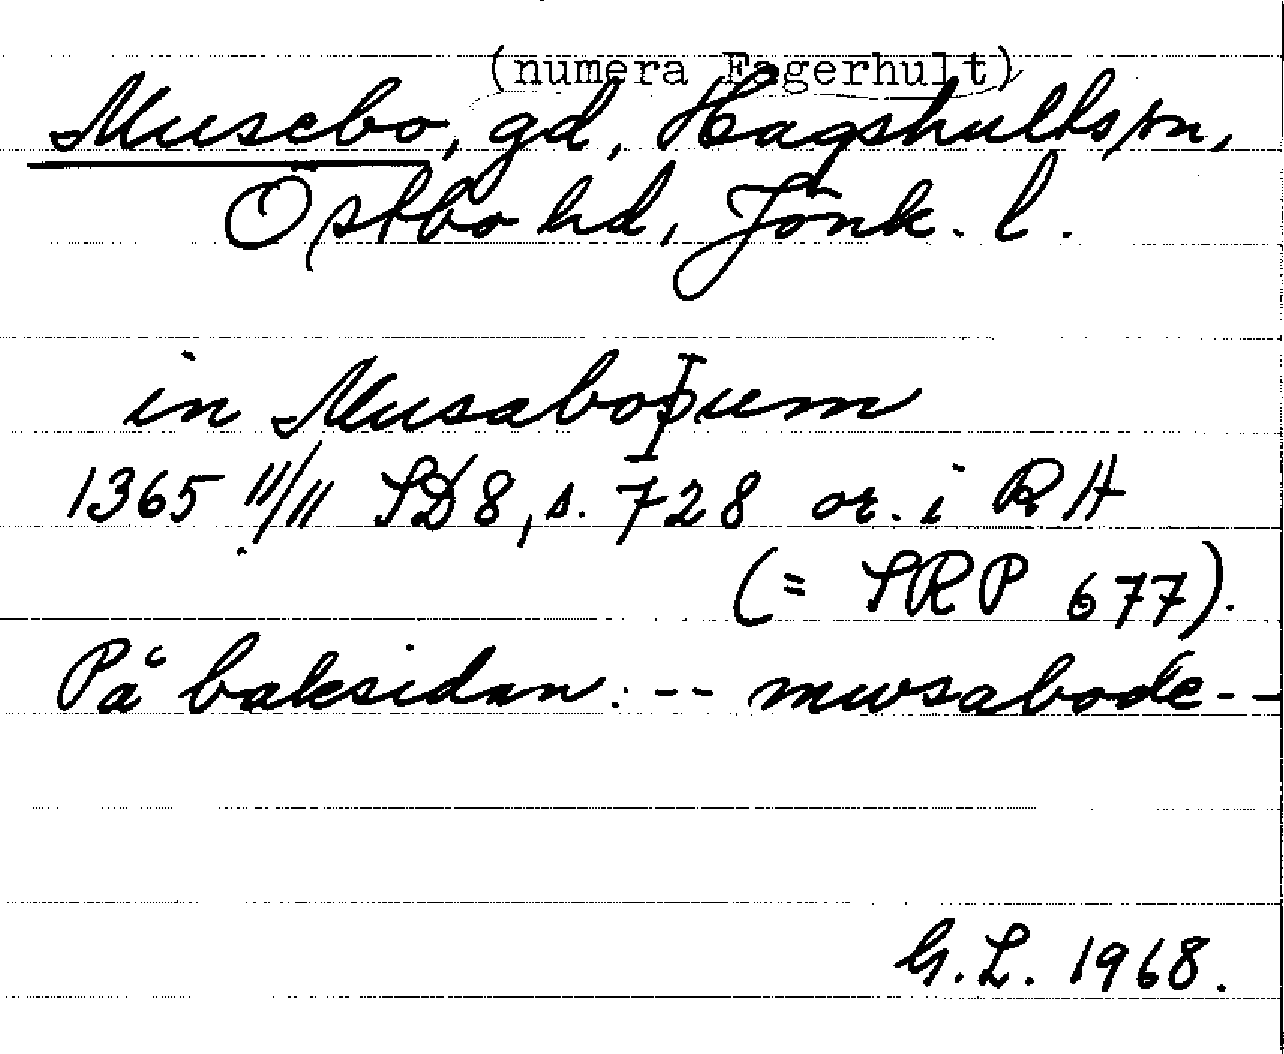 (numera Fagerhult)
Musebo, gd, Hagshults sn,
Östbo hd, Jönk. l.
in Musaboþum
1365 11/11 SD8, s. 728 or. i RA
(= SRP 677).
På baksidan: -- mwsabode --
G.L. 1968.